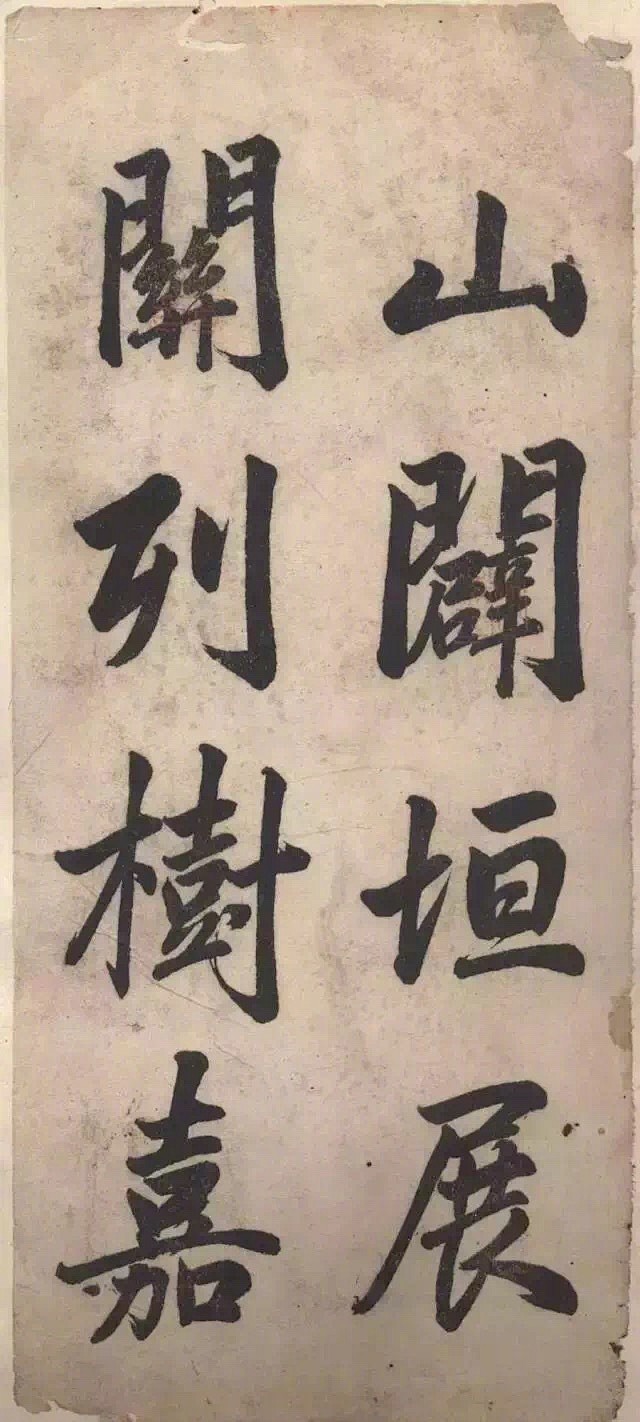 山闢垣展
關列樹嘉